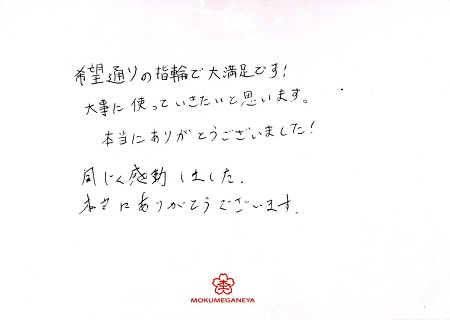 希望通りの指輪で大満足です!
大事に使っていきたいと思います。
本当にありがとうございました!
同じく感動しました.
本当にありがとうございます.
MOKUMEGANEYA